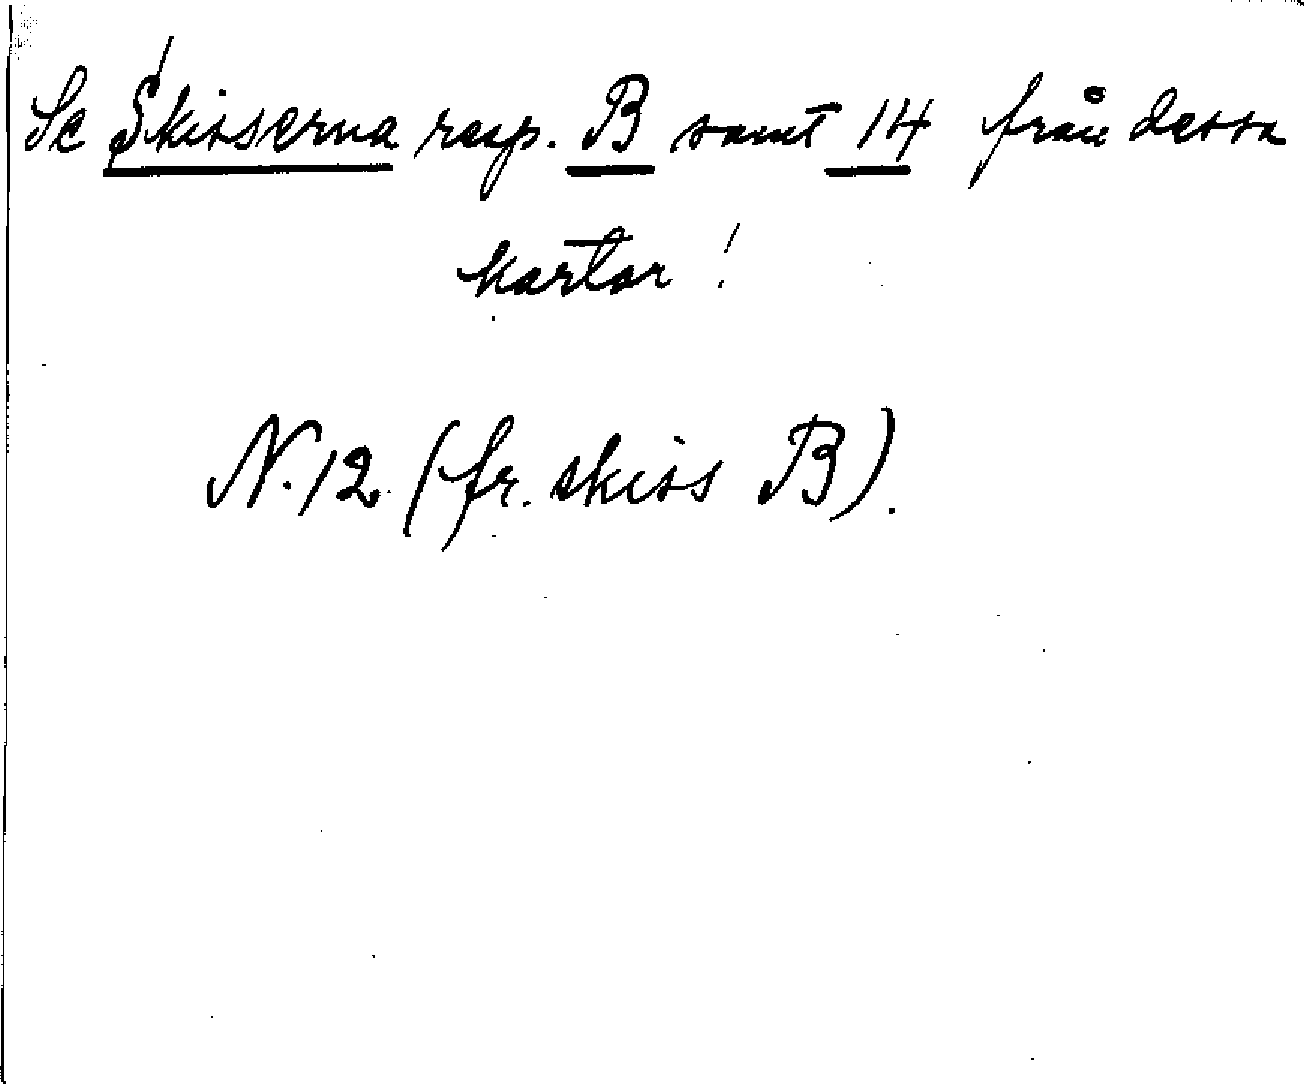 Se Skisserna resp. B samt 14 från dessa
kartor!
N. 12. (fr. skiss B).